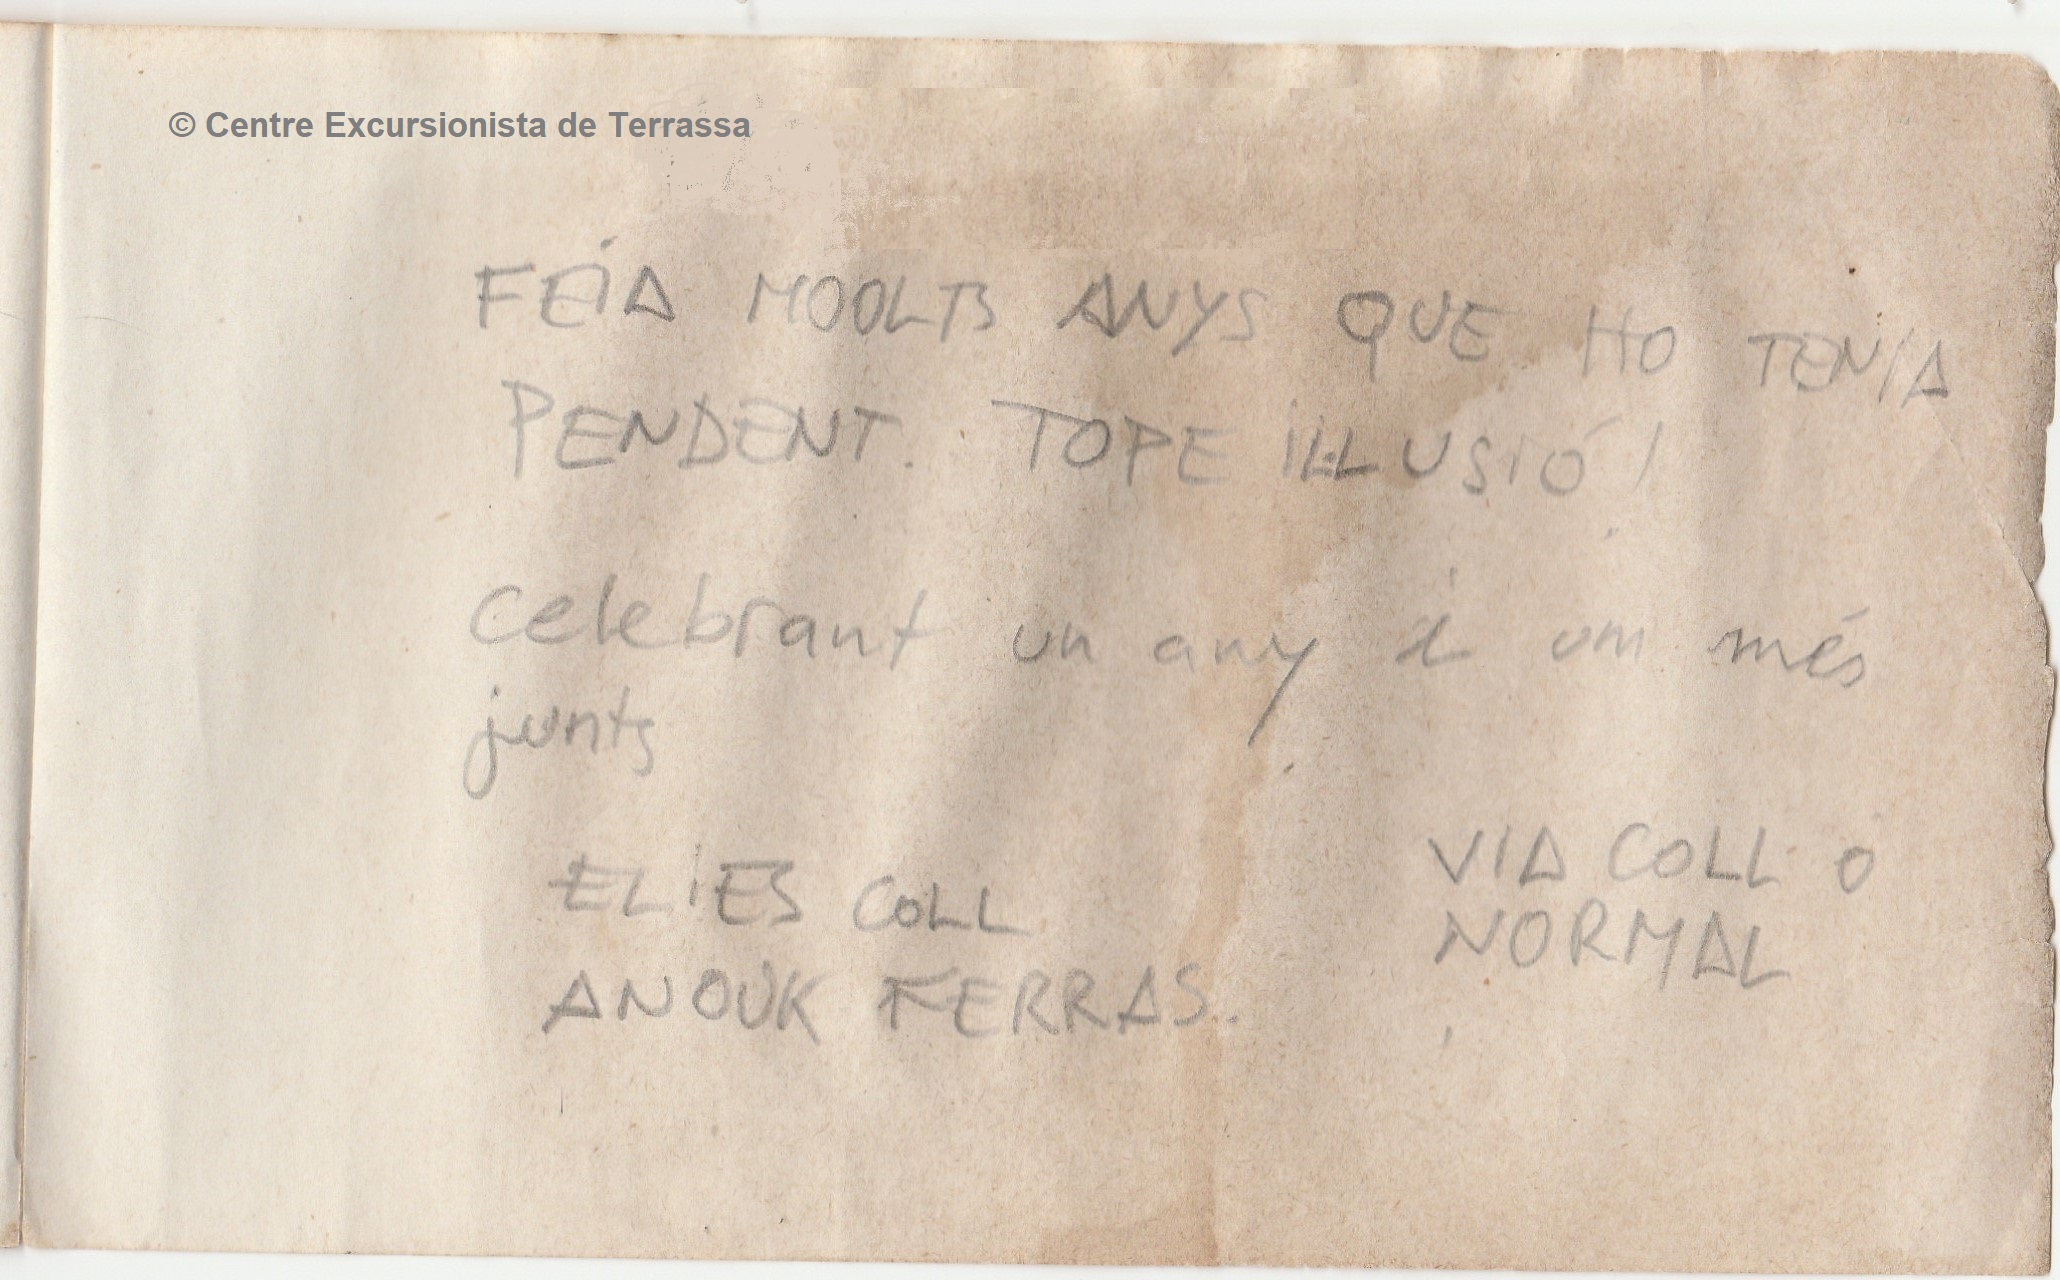 © Centre Excursionista de Terrassa
FEIA MOOLTS ANYS QUE HO TENIA
PENDENT. TOPE IL·LUSIÓ!
Celebrant un any i un més
junts
ELIES COLL
ANOUK FERRAS.
VIA COLL O
NORMAL